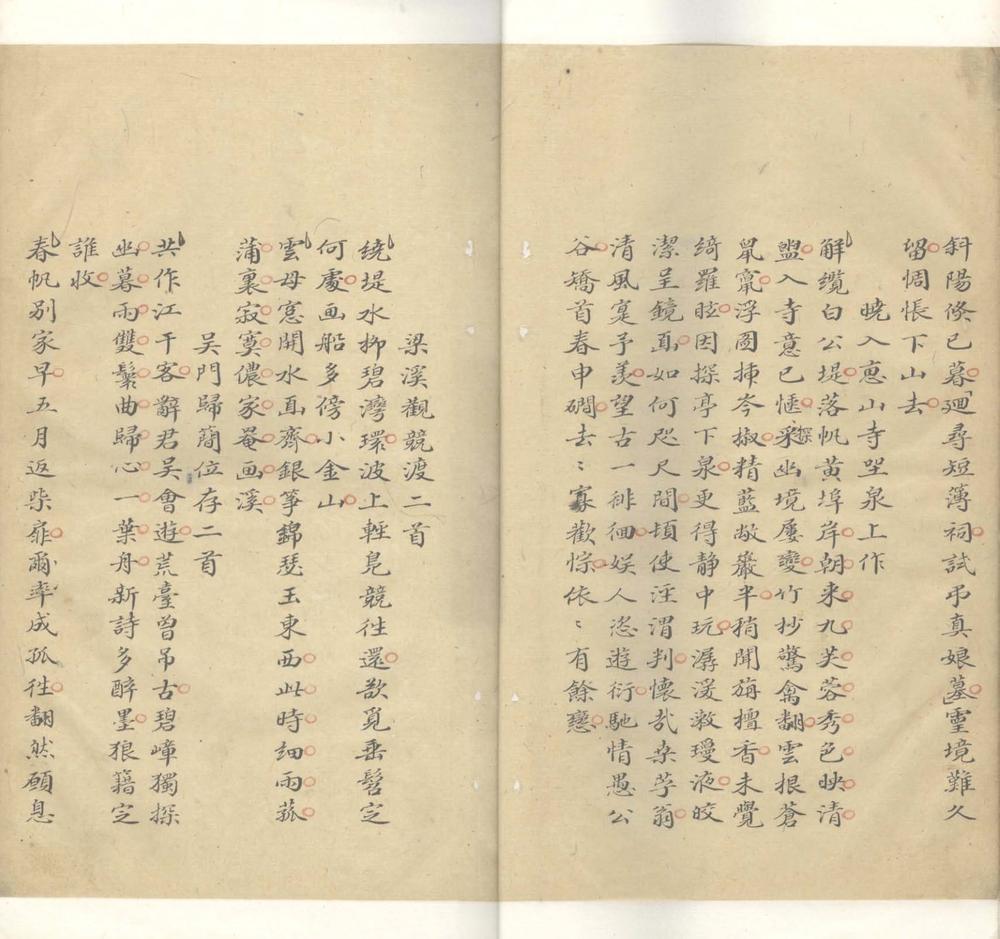 斜陽倐已暮廻尋短簿祠試弔真娘墓霊境難久
留惆悵下山去
曉入惠山寺坐泉上作
解纜白公堤落帆黄埠岸朝来九芙蓉秀色映清
盥入寺意已愜探幽境屢變竹抄驚禽翻雲根蒼
鼠竄浮圖揷岑椒精藍敞巖半稍聞旃檀香未覺
綺羅眩因探亭下泉更得静中玩潺湲漱瓊液皎
潔呈鏡面如何咫尺間頓使涇渭判懷哉桑苧翁
清風寔予羡望古一徘徊娱人恣遊衍馳情愚公
谷矯首春申磵去〻寡歡悰依〻有餘戀
梁溪觀競渡二首
绕堤水栁碧灣環波上輕凫競徃還欲覓垂髫定
何處画船多傍小金山
雲母窓開水面齊銀筝錦瑟玉東西此時細雨菰
蒲裏寂寞儂家罨画溪
吴門歸簡位存二首
共作江干客辭君吴會遊荒臺曾吊古碧嶂獨探
幽暮雨雙鬟曲歸心一葉舟新詩多醉墨狼籍定
誰收
春帆别家早五月返柴扉爾率成孤徃翻然願息